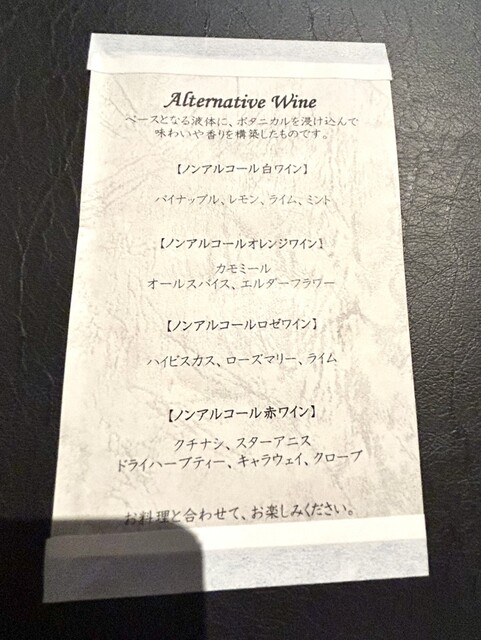 Alternative Wine
ベースとなる液体に、ボタニカルを浸け込んで
味わいや香りを構築したものです。
【ノンアルコール白ワイン】
パイナップル、レモン、ライム、ミント
【ノンアルコールオレンジワイン】
カモミール
オールスパイス、エルダーフラワー
【ノンアルコールロゼワイン】
ハイビスカス、ローズマリー、ライム
【ノンアルコール赤ワイン】
クチナシ、スターアニス
ドライハーブティー、キャラウェイ、クローブ
お料理と合わせて、お楽しみください。